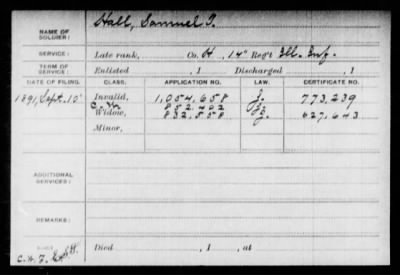 NAME OF SOLDIER: Hall, Samuel T.
SERVICE: Late rank, Co. H, 14" Reg't Ill. Inf.
TERM OF SERVICE: Enlisted , 1 Discharged , 1
DATE OF FILING. CLASS. APPLICATION NO. LAW. CERTIFICATE NO.
1891, Sept. 15 Invalid, 1,054,658 J. 773,239
C.W. 852,402
Widow, 832,558 627,643
Minor,
ADDITIONAL SERVICES:
REMARKS:
Died , 1 , at